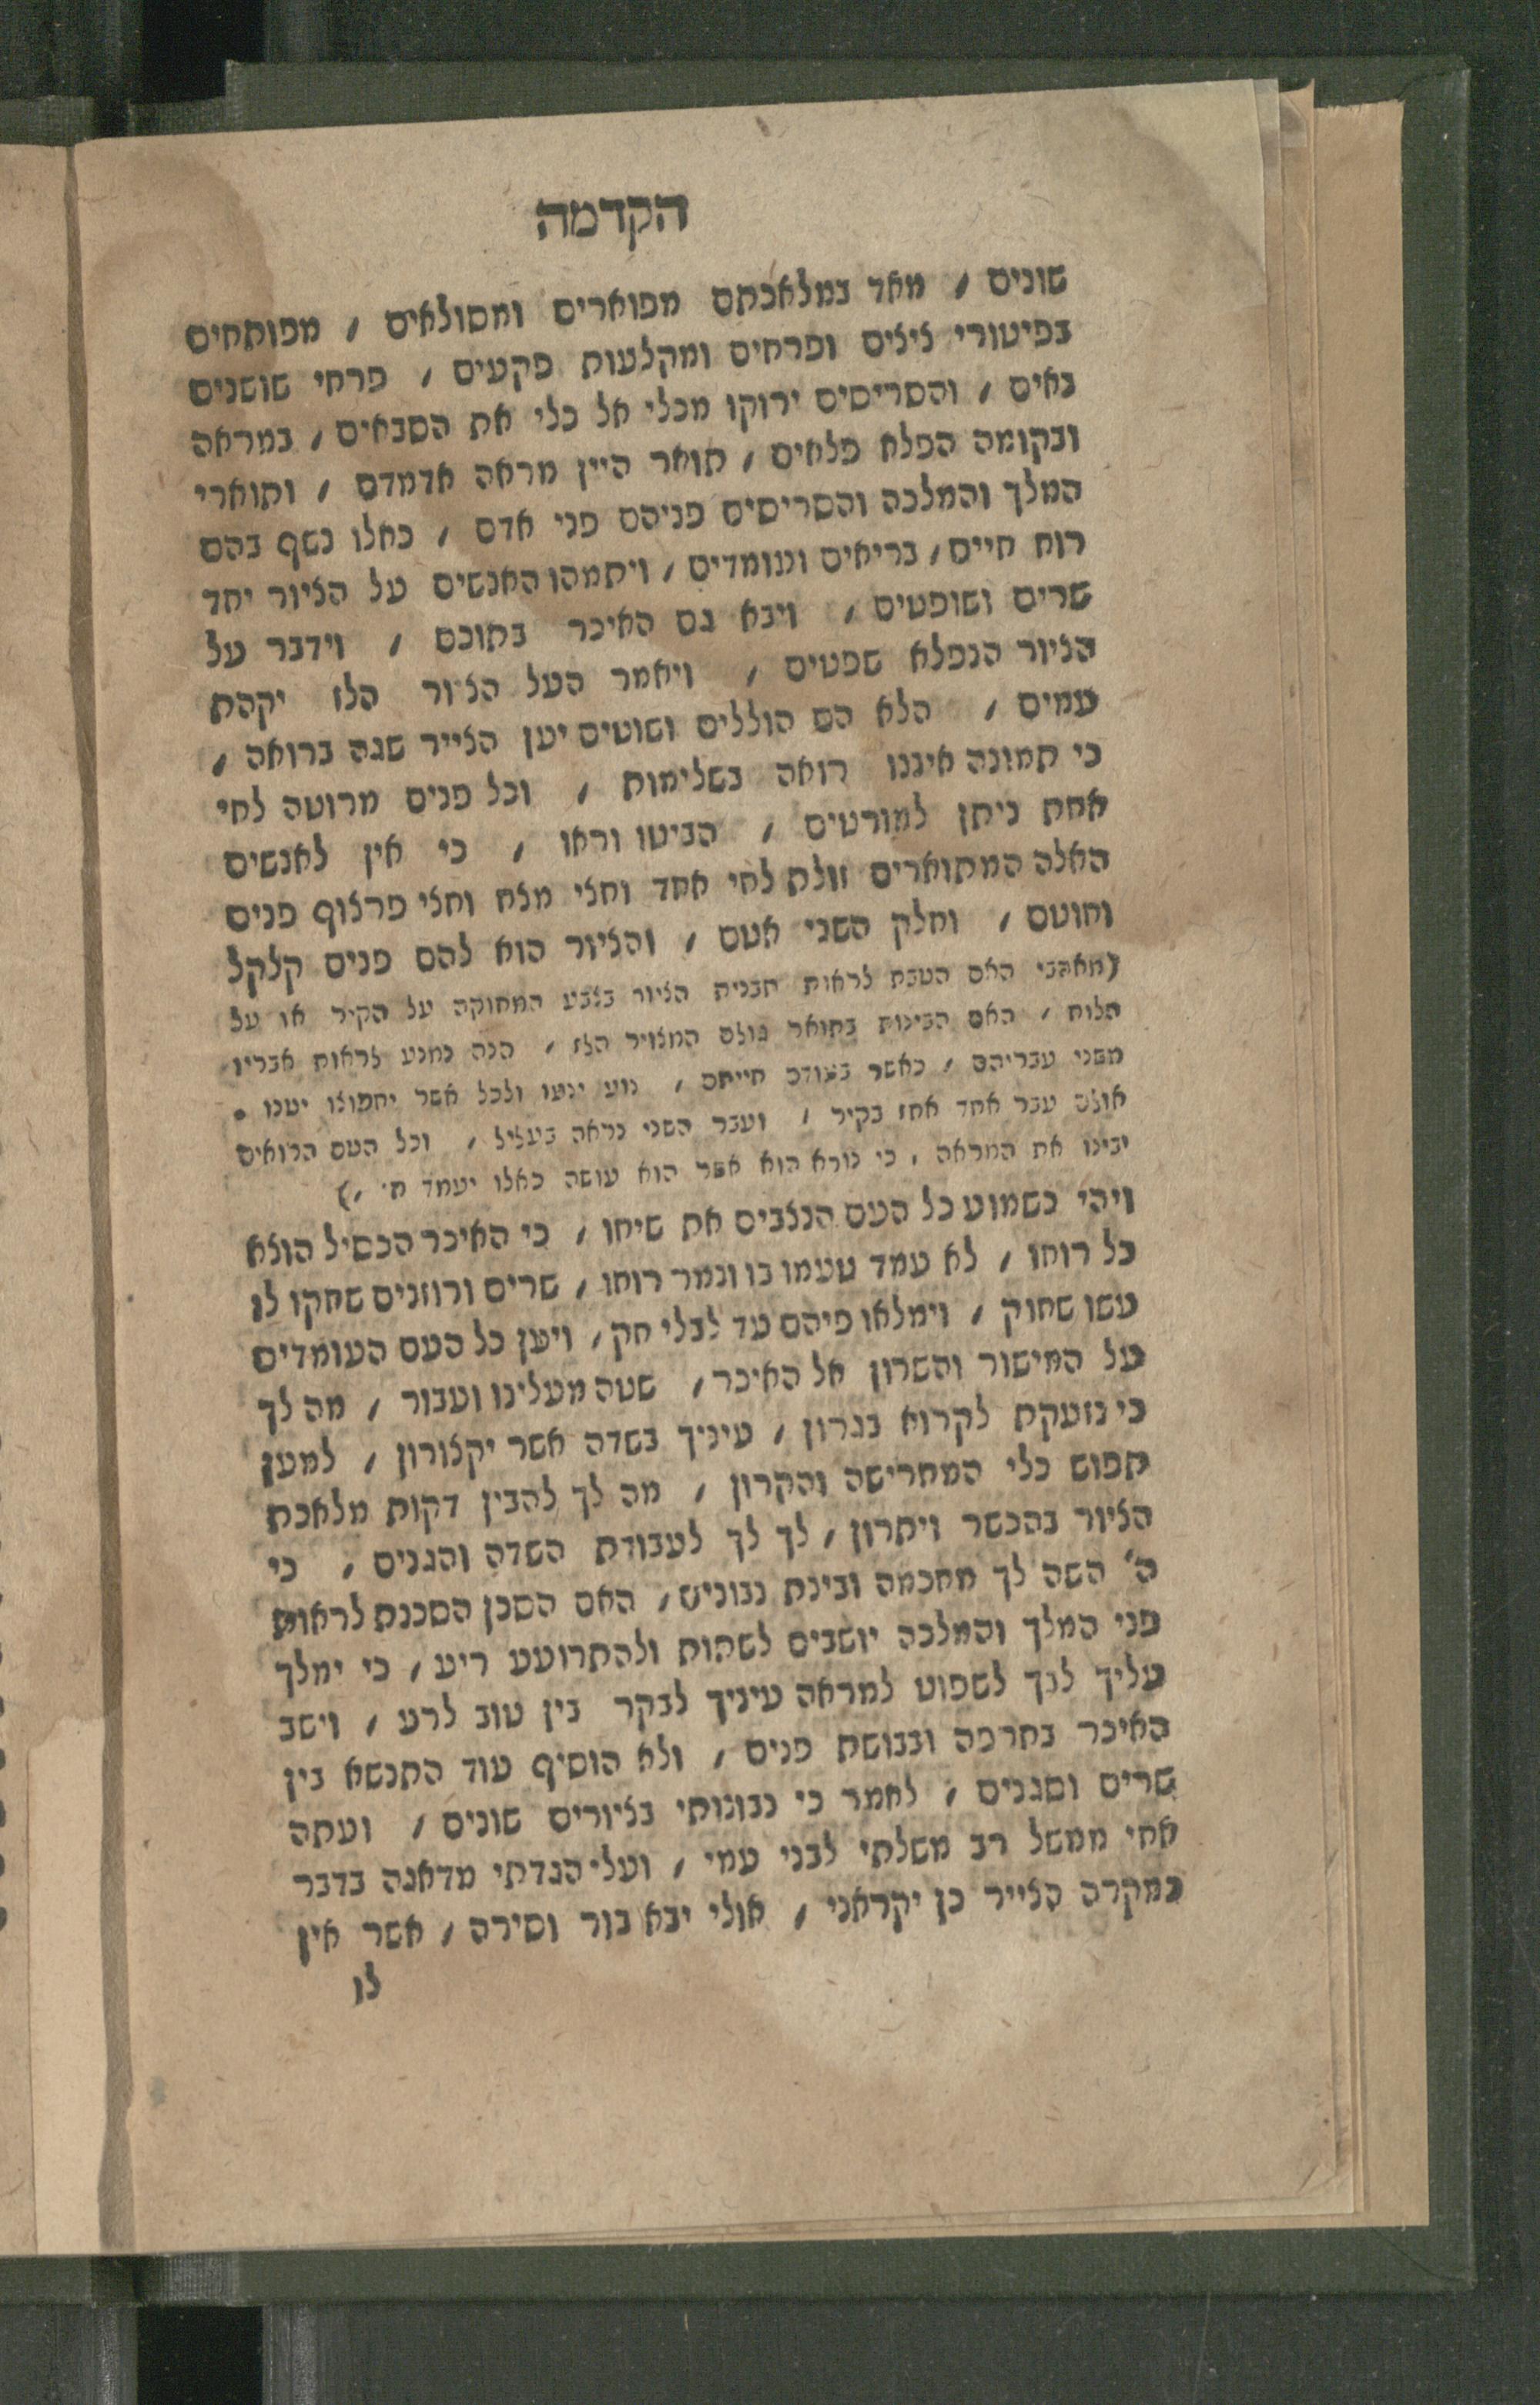 הקדמה
שונים, מאד במלאכתם מפוארים ומסולאים, מפותחים
בפיטורי ציצים ופרחים ומקלעות פקעים, פרחי שושנים
באים, והסריסים ירוקו מכלי אל כלי את הסבאים, במראה
ובקומה הפלא פלאים, תואר היין מראה אדמדם, ותוארי
המלך והמלכה והסריסים פניהם פני אדם, כאלו נשף בהם
רוח חיים, בריאים ועומדים, ויתמהו האנשים על הציור יחד
שרים ושופטים, ויבא גם האיכר בתוכם, וידבר על
הציור הנפלא שפטים, ויאמר העל הציור הלז יקהת
עמים, הלא הם הוללים ושוטים יען הצייר שגה ברואה,
כי תמונה איננו רואה בשלימות, וכל פנים מרוטה לחי
אחת ניתן למורטים, הביטו וראו, כי אין לאנשים
האלה המתוארים זולת לחי אחד וחצי מצח וחצי פרצוף פנים
וחוטם, וחלק השני אטם, והציור הוא להם פנים קלקל
(מאהבי האם הטבת לראות תבנית הציור בצבע המחוקה על הקיר או על
הלוח, האם הבינות בתואר גולם המצויר הלז, הנה נמנע לראות אבריו
משני עבריהם, כאשר בעודם חייתם, נוע ינועו ולכל אשר יחפוצו יטנו.
אולם עבר אחד אחז בקיר, ועבר השני נראה בעליל, וכל העם הרואים
יבינו את המראה, כי נורא הוא אשר הוא עושה כאלו יעמד חי,)
ויהי כשמוע כל העם הנצבים את שיחו, כי האיכר הכסיל הוצא
כל רוחו, לא עמד טעמו בו ונמר רוחו, שרים ורוזנים שחקו לו
עשו שחוק, וימלאו פיהם עד לבלי חק, ויען כל העם העומדים
על המישור והשרון אל האיכר, שטה מעלינו ועבור, מה לך
כי נזעקת לקרוא בגרון, עיניך בשדה אשר יקצורון, למען
תפוש כלי המחרישה והקרון, מה לך להבין דקות מלאכת
הציור בהכשר ויתרון, לך לך לעבודת השדה והגנים, כי
ה' השה לך מחכמה ובינת נבונים, האם הסכן הסכנת לראות
פני המלך והמלכה יושבים לשתות ולהתרועע ריע, כי ימלך
עליך לבך לשפוט למראה עיניך לבקר בין טוב לרע, וישב
האיכר בחרפה ובבושת פנים, ולא הוסיף עוד התנשא בין
שרים וסגנים, לאמר כי נבונותי בציורים שונים, ועתה
אחי ממשל רב משלתי לבני עמי, ועלי הגדתי מדאגה בדבר
כמקרה הצייר כן יקראני, אולי יבא בור וסירה, אשר אין
לו